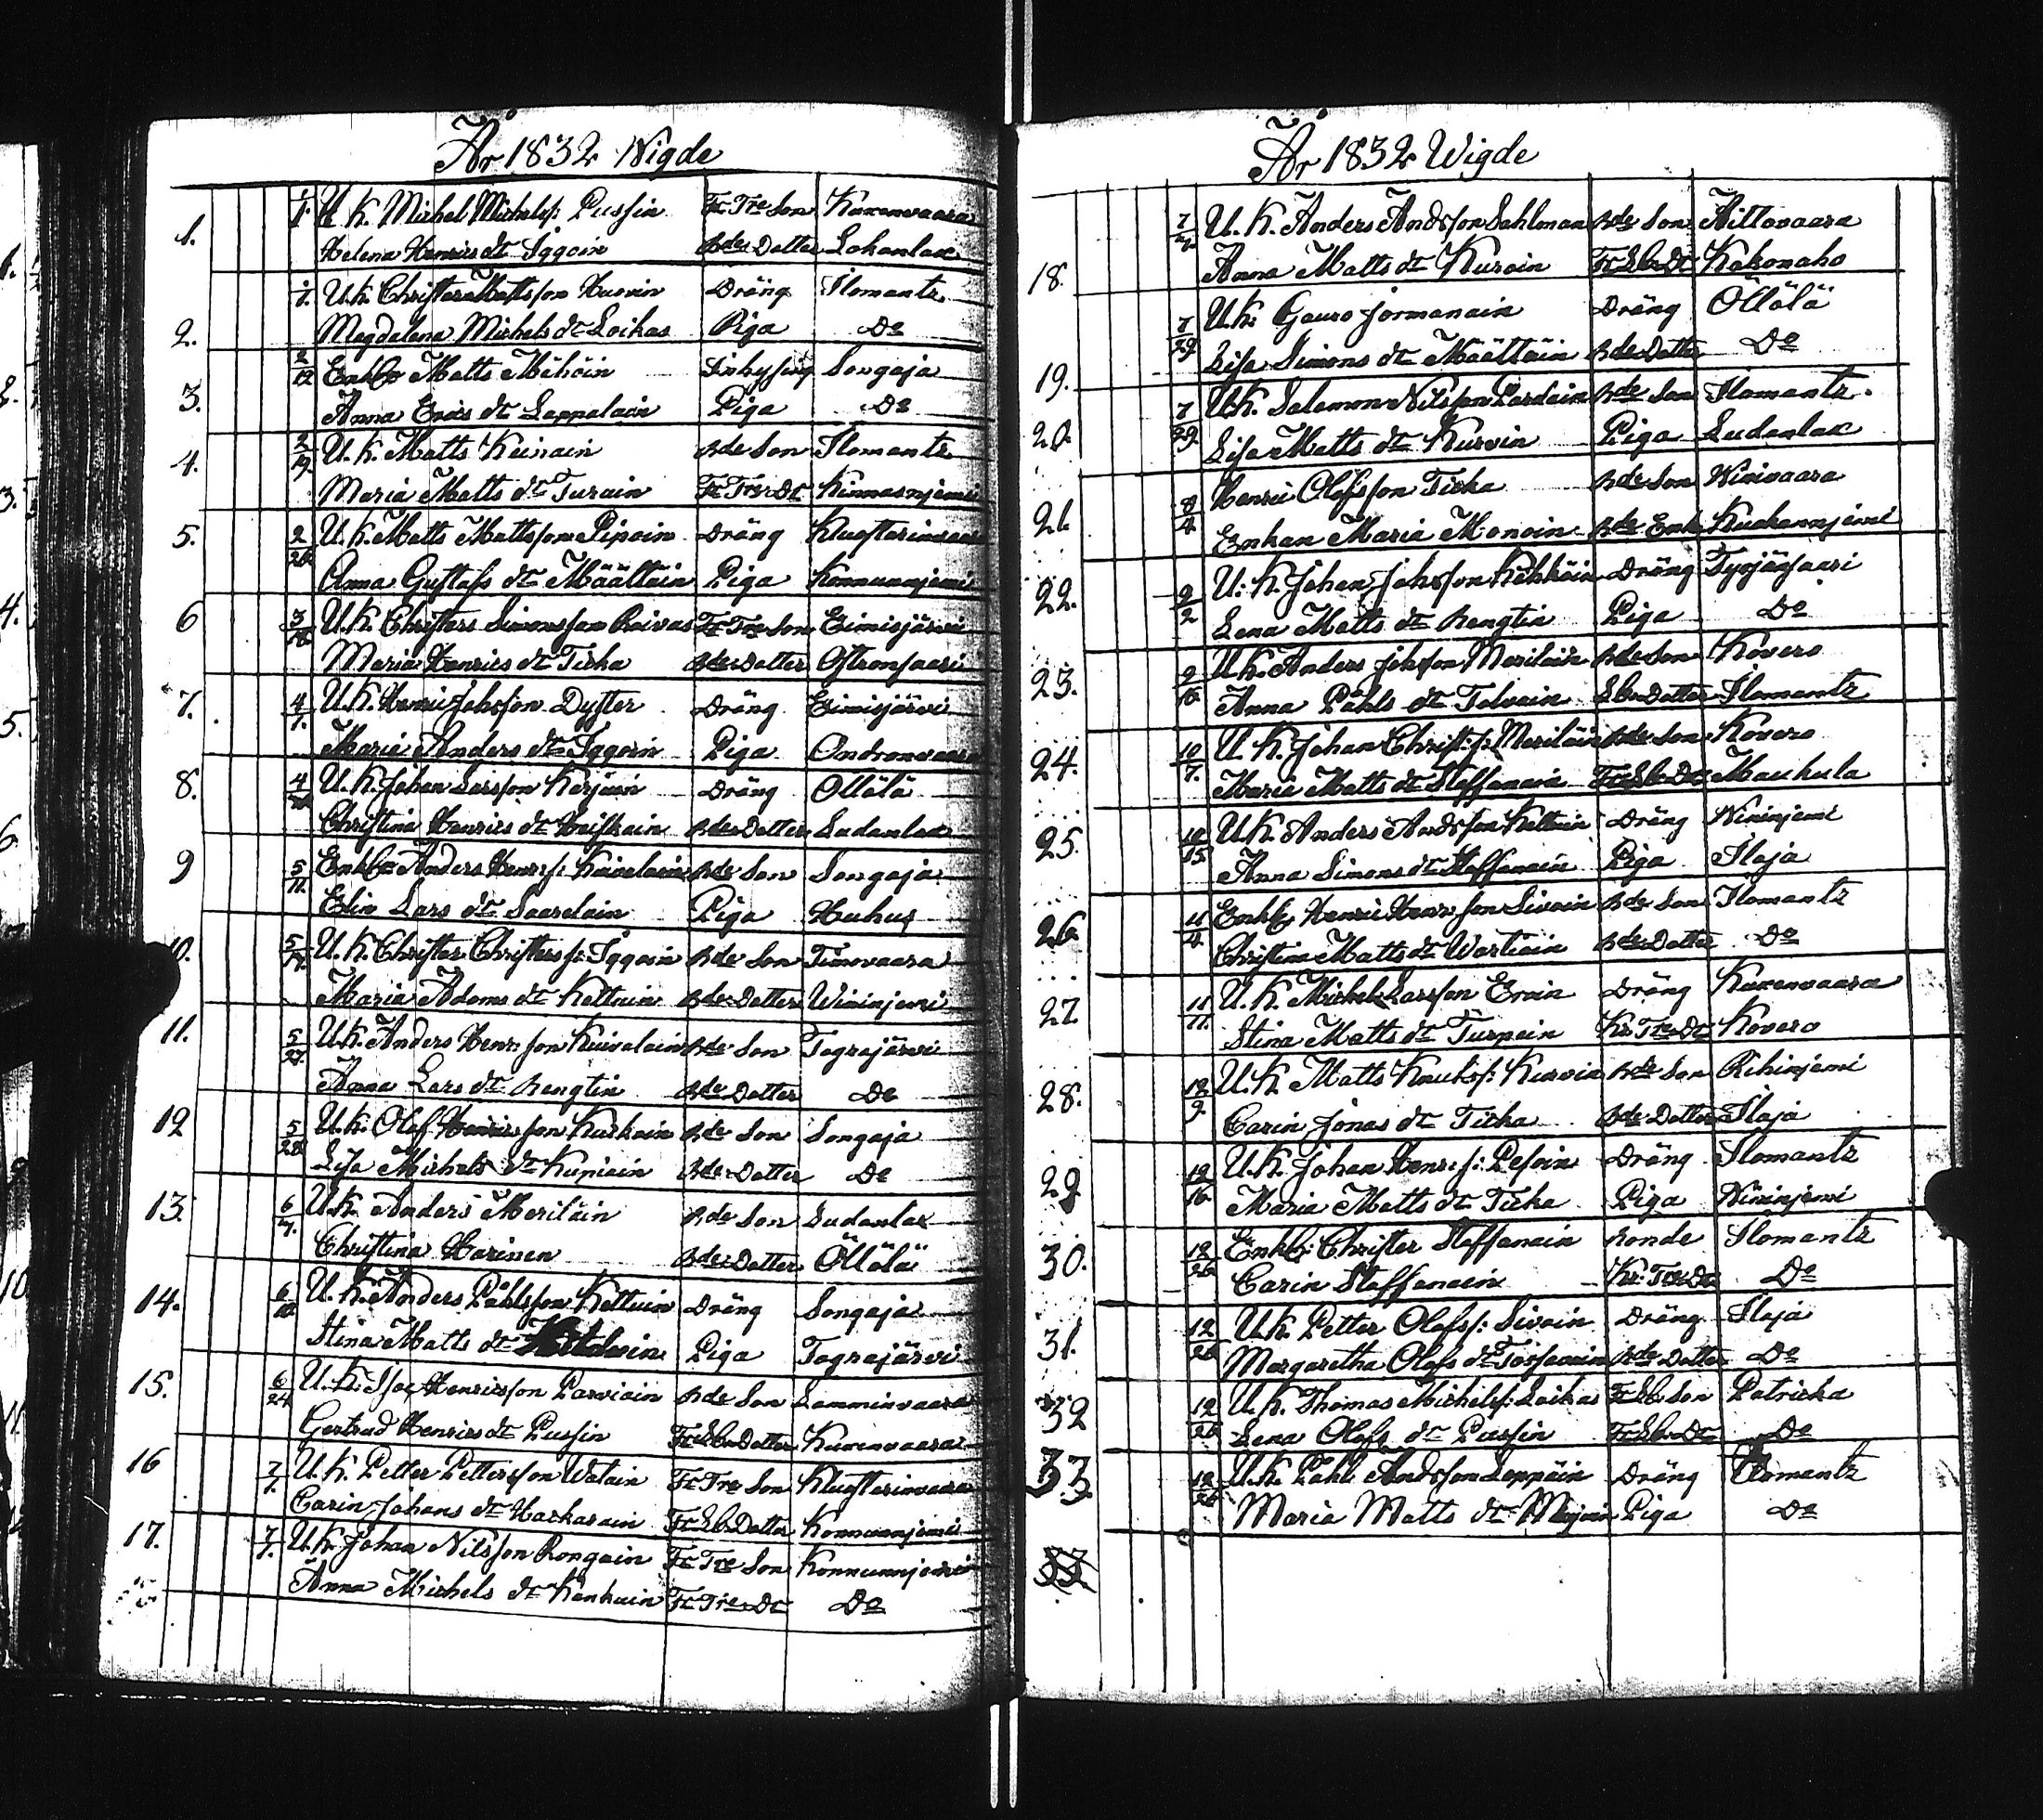 År 1832 Wigde
1. 1/1. U. K. Michel Michelss: Pussin Fr Tre Son Kuxenvaara
Helena Henrics dr Iggoin Bdes Dotter Lokanlax
2. 1/1. U.K. Christer Mattsson Huovin Dräng Ilomantz
Magdalena Michels dr Loikas Piga Do
3. 2/12 Enkl Matts Mähöin Inhysing Songaja
Anna Erics dr Lappalain Piga Do
4. 2/19. U. K. Matts Keinain Bde Son Ilomantz
Maria Matts dr Turain Fr Tre Dr Kinnasnjemi
5. 2/26 U. K. Matts Mattsson Piipoin Dräng Kluosterinvaara
Anna Gustafs dr Määttäin Piga Konnunnjemi
6 3/18. U. K. Christers Simonsson Reivas Fr Tre Son Eimisjärvi
Maria Henrics dr Ticka Bdes Dotter Ostronsaari
7. 4/1. U. K. Henric Johsson Dyster Dräng Eimisjärvi
Maria Anders dr Iggoin Piga Ondronvaara
8. U. K. Johan Larsson Karjuin Dräng Öllölä
Christina Henrics dr Heiskain Bdes Dotter Ludanlax
9 5/11. Enkl Anders Henrs: Kuivalain Bde Son Songaja
Elin Lars dr Saarelain Piga Huhus
10. 5/17. U. K. Christer Christerss: Iggoin Bde Son Timovaara
Maria Adams dr Kettuin Bdes Dotter Wininjemi
11. 5/27. U. K. Anders Henrsson Kuivalain Bde Son Tograjärvi
Anna Lars dr Rengtin Bdes Dotter Do
12 5/28. U. K. Olof Henricsson Kuskoin Bde Son Songaja
Lisa Michels dr Kupiain Bdes Dotter Do
13. 6/7. U. K. Anders Meriläin Bde Son Ludanlax
Christina Harinen Bdes Dotter Öllölä
14. U. K. Anders Påhlsson Kettuin Dräng Songaja
Stina Matts dr Piga Tograjärvi
15. 6/24. U. K. Isac Henricsson Parviain Bde Son Lamminvaara
Gertrud Henrics dr Pussin Fr Lbs Dotter Kuxenvaara
16 7/1. U. K. Petter Pettersson Watain Fr Tre Son Kluosterinvaara
Carin Johans dr Haskarain Fr Lbs Dotter Konnunnjemi
17. 7/1. U. K. Johan Nilsson Rongain Fr Tre Son Konnunnjemi
Anna Michels dr Kankuin Fr Tre Dr Do
År 1832 Wigde
18. U. K. Anders Andsson Sahlman Bde Son Aittovaara
Anna Matts dr Kurvin Fr Lbs Dr Kakonaho
19. 7/29. U. K. Gauro Jormanain Dräng Öllölä
Lisa Simons dr Määttäin Bdes Dotter Do
20. 7/29. U. K. Salomon Nilsson Pardain Bde Son Ilomantz.
Lisa Matts dr Kurvin Piga Ludanlax
21. 8/4 Henric Olofsson Ticka Bde Son Winivaara
Enkan Maria Monoin Bde Enk Kuckannjemi
22. 9/2 U. K. Johan Johsson Kähköin Dräng Tyyjänsaari
Lena Matts dr Rengtin Piga Do
23. 9/16. U. K. Anders Johsson Meriläin Bde Son Kovero
Anna Påhls dr Tolvain Lbs Dotter Ilomantz
24. 10/7. U. K. Johan Christs: Meriläin Bde Son Kovero
Maria Matts dr Staffanain Fr Lbs Dr Maukula
25. 10/15. U. K. Anders Andsson Kettuin Dräng Nininjemi
Anna Simons dr Staffanain Piga Ilaja
26. 11/4. Enkl Henric Henrsson Sivoin Bde Son Ilomantz
Christina Matts dr Wartiain Bdes Dotter Do
27. 11/11. U. K. Michel Larsson Ervin Dräng Kuxenvaara
Stina Matts dr Turpain Kr. Tre Dr Kovero
28. 12/9. U. K. Matts Knutss: Kurvin Bde Son Rihinjemi
Carin Jonas dr Ticka Bdes Dotter Ilaja
29. 12/16. U. K. Johan Henrs: Pesoin Dräng Ilomantz
Maria Matts dr Ticka Piga Nininjemi
30. 12/26. Enkl: Christer Staffanain Bonde Ilomantz
Carin Staffanain Kr. Tre Dr Do
31. 12/26 U. K. Petter Olofss: Sivoin Dräng Ilaja
Margaretha Olofs dr Bdes Dotter Do
32 12/26 U. K. Thomas Michelss: Loikas Fr Lbs Son Patricka
Lena Olofs dr Pussin Fr Lbs Dr Do
33. 12/26 U. K. Påhl Andsson Leppäin Dräng Ilomantz
Maria Matts dr Piga Do
33.